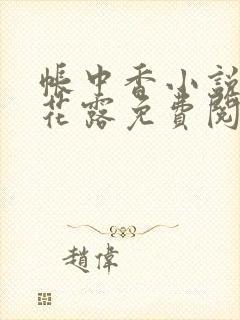 帳中香小說
花露免費閱
趙偉